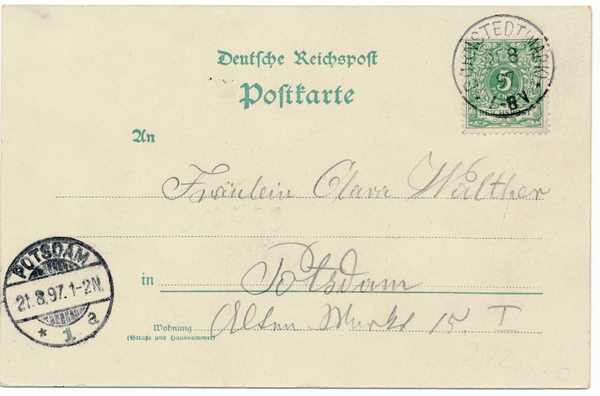 Deutsche Reichspost
Postkarte
5
REICHSPOST
21 8
97
7-8V
An
Fräulein Clara Walther
in Potsdam
Wohnung Alten Markt 15. I
(Straße und Hausnummer)
POTSDAM
21.8.97.1-2N.
* 1 a